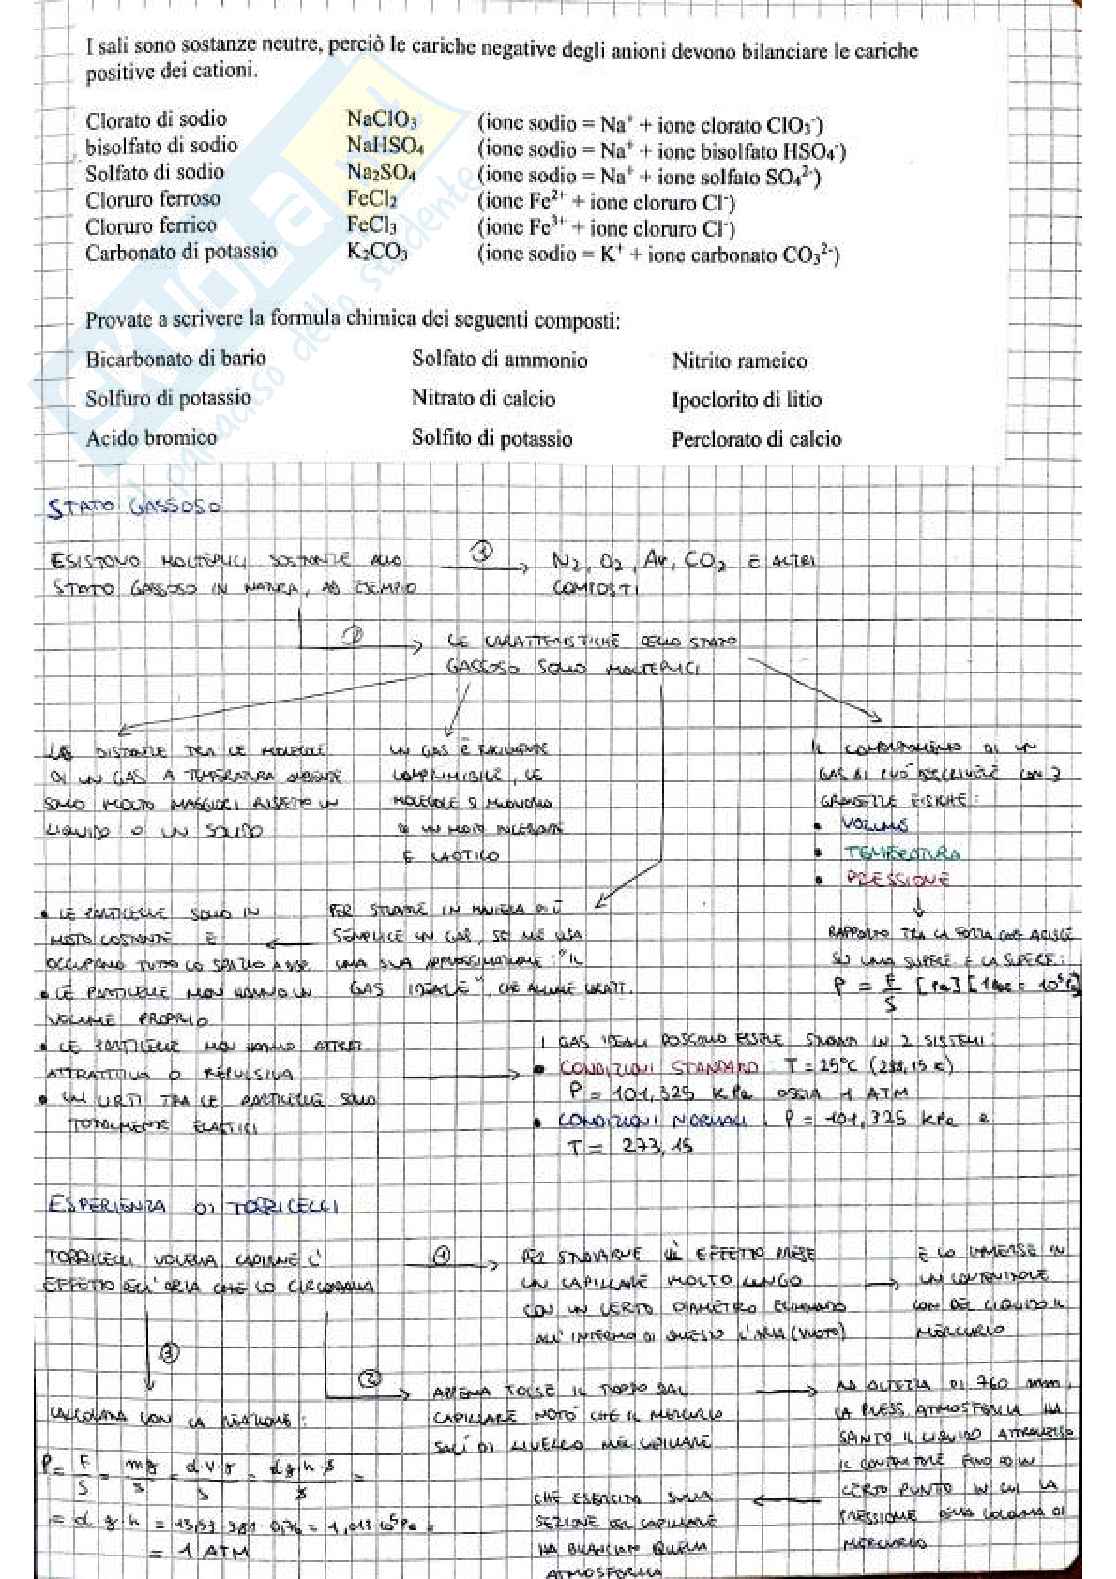 I sali sono sostanze neutre, perciò le cariche negative degli anioni devono bilanciare le cariche
positive dei cationi.
Clorato di sodio NaClO₃ (ione sodio = Na⁺ + ione clorato ClO₃⁻)
bisolfato di sodio NaHSO₄ (ione sodio = Na⁺ + ione bisolfato HSO₄⁻)
Solfato di sodio Na₂SO₄ (ione sodio = Na⁺ + ione solfato SO₄²⁻)
Cloruro ferroso FeCl₂ (ione Fe²⁺ + ione cloruro Cl⁻)
Cloruro ferrico FeCl₃ (ione Fe³⁺ + ione cloruro Cl⁻)
Carbonato di potassio K₂CO₃ (ione sodio = K⁺ + ione carbonato CO₃²⁻)
Provate a scrivere la formula chimica dei seguenti composti:
Bicarbonato di bario Solfato di ammonio Nitrito rameico
Solfuro di potassio Nitrato di calcio Ipoclorito di litio
Acido bromico Solfito di potassio Perclorato di calcio
STATO GASSOSO
ESISTONO MOLTEPLICI SOSTANZE ALLO
STATO GASSOSO IN NATURA, AD ESEMPIO
N₂, O₂, Ar, CO₂ E ALTRI
COMPOSTI
LE CARATTERISTICHE DELLO STATO
GASSOSO SONO MOLTEPLICI
LE DISTANZE TRA LE MOLECOLE
DI UN GAS A TEMPERATURA AMBIENTE
SONO MOLTO MAGGIORI RISPETTO UN
LIQUIDO O UN SOLIDO
UN GAS È FACILMENTE
COMPRIMIBILE, LE
MOLECOLE SI MUOVONO
IN UN MOTO INCESSANTE
E CAOTICO
IL COMPORTAMENTO DI UN
GAS SI PUÒ DESCRIVERE CON 3
GRANDEZZE FISICHE:
• VOLUME
• TEMPERATURA
• PRESSIONE
RAPPORTO TRA LA FORZA CHE AGISCE
SU UNA SUPERF. E LA SUPERF.:
P = F/S [Pa] [1 bar = 10⁵ Pa]
PER STUDIARE IN MANIERA PIÙ
SEMPLICE UN GAS, SE NE USA
UNA SUA APPROSSIMAZIONE: "IL
GAS IDEALE", CHE ALCUNE CARATT.
• LE PARTICELLE SONO IN
MOTO COSTANTE E
OCCUPANO TUTTO LO SPAZIO A DISP.
• LE PARTICELLE NON HANNO UN
VOLUME PROPRIO
• LE PARTICELLE NON HANNO ATTRAZ.
ATTRATTIVA O REPULSIVA
• GLI URTI TRA LE PARTICELLE SONO
TOTALMENTE ELASTICI
I GAS IDEALI POSSONO ESSERE STUDIATI IN 2 SISTEMI:
• CONDIZIONI STANDARD T = 25°C (298,15 K)
P = 101,325 KPa OSSIA 1 ATM
• CONDIZIONI NORMALI: P = 101,325 KPa e
T = 273,15
ESPERIENZA DI TORRICELLI
TORRICELLI VOLEVA CAPIRNE L'
EFFETTO DELL'ARIA CHE LO CIRCONDAVA
PER STUDIARNE L'EFFETTO PRESE
UN CAPILLARE MOLTO LUNGO
CON UN CERTO DIAMETRO ELIMINANDO
ALL'INTERNO DI QUESTO L'ARIA (VUOTO)
E LO IMMERSE IN
UN CONTENITORE
CON DEL LIQUIDO IL
MERCURIO
APPENA TOLSE IL TAPPO DAL
CAPILLARE NOTÒ CHE IL MERCURIO
SALÌ DI LIVELLO NEL CAPILLARE
AD ALTEZZA DI 760 mm,
LA PRESS. ATMOSFERICA HA
SPINTO IL LIQUIDO ATTRAVERSO
IL CONTENITORE FINO AD UN
CERTO PUNTO IN CUI LA
PRESSIONE DELLA COLONNA DI
MERCURIO
CHE ESERCITA SULLA
SEZIONE DEL CAPILLARE
HA BILANCIATO QUELLA
ATMOSFERICA
CALCOLATA CON LA RELAZIONE:
P = F/S = mg/S = dVg/S = dghS/S =
= d g h = 13,59 · 9,81 · 0,76 = 1,013 · 10⁵ Pa
= 1 ATM